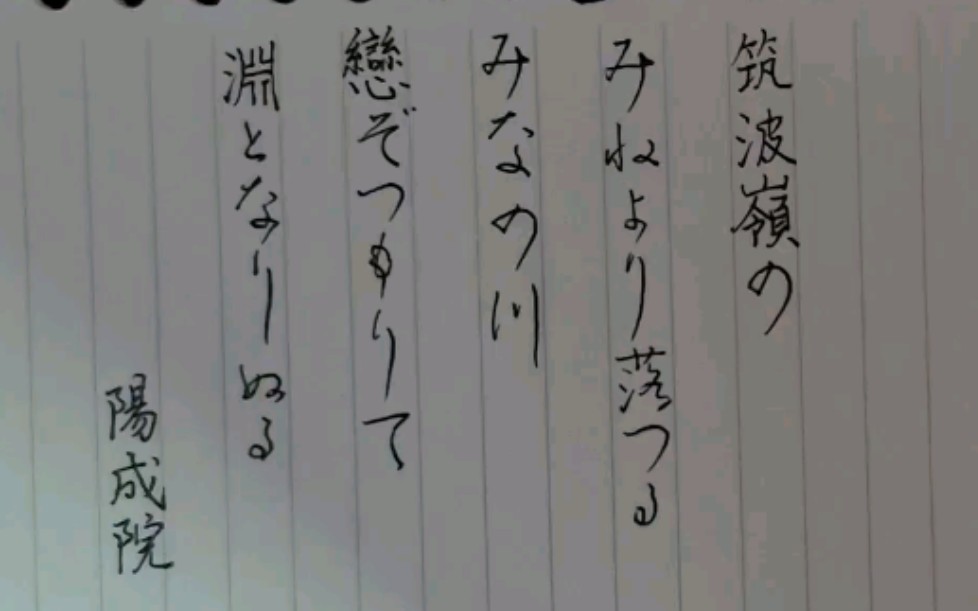 筑波嶺の
みねより落つる
みなの川
戀ぞつもりて
淵となりぬる
陽成院